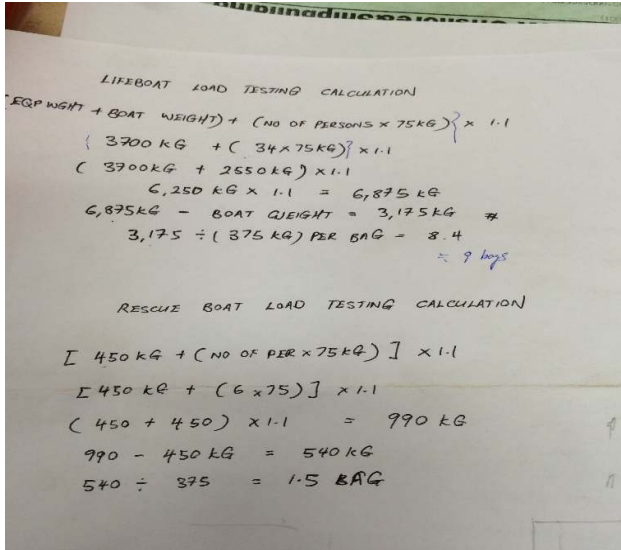 LIFEBOAT LOAD TESTING CALCULATION
(EQP WGHT + BOAT WEIGHT) + (NO OF PERSONS x 75KG)} x 1.1
{ 3700 KG + ( 34 x 75KG)} x 1.1
( 3700KG + 2550KG ) x 1.1
6,250 KG x 1.1 = 6,875 KG
6,875KG - BOAT WEIGHT = 3,175KG #
3,175 ÷ ( 375 KG) PER BAG = 8.4
≈ 9 bags
RESCUE BOAT LOAD TESTING CALCULATION
[ 450 KG + (NO OF PER x 75KG) ] x 1.1
[ 450 KG + (6 x 75)] x 1.1
( 450 + 450 ) x 1.1 = 990 KG
990 - 450 KG = 540 KG
540 ÷ 375 = 1.5 BAG